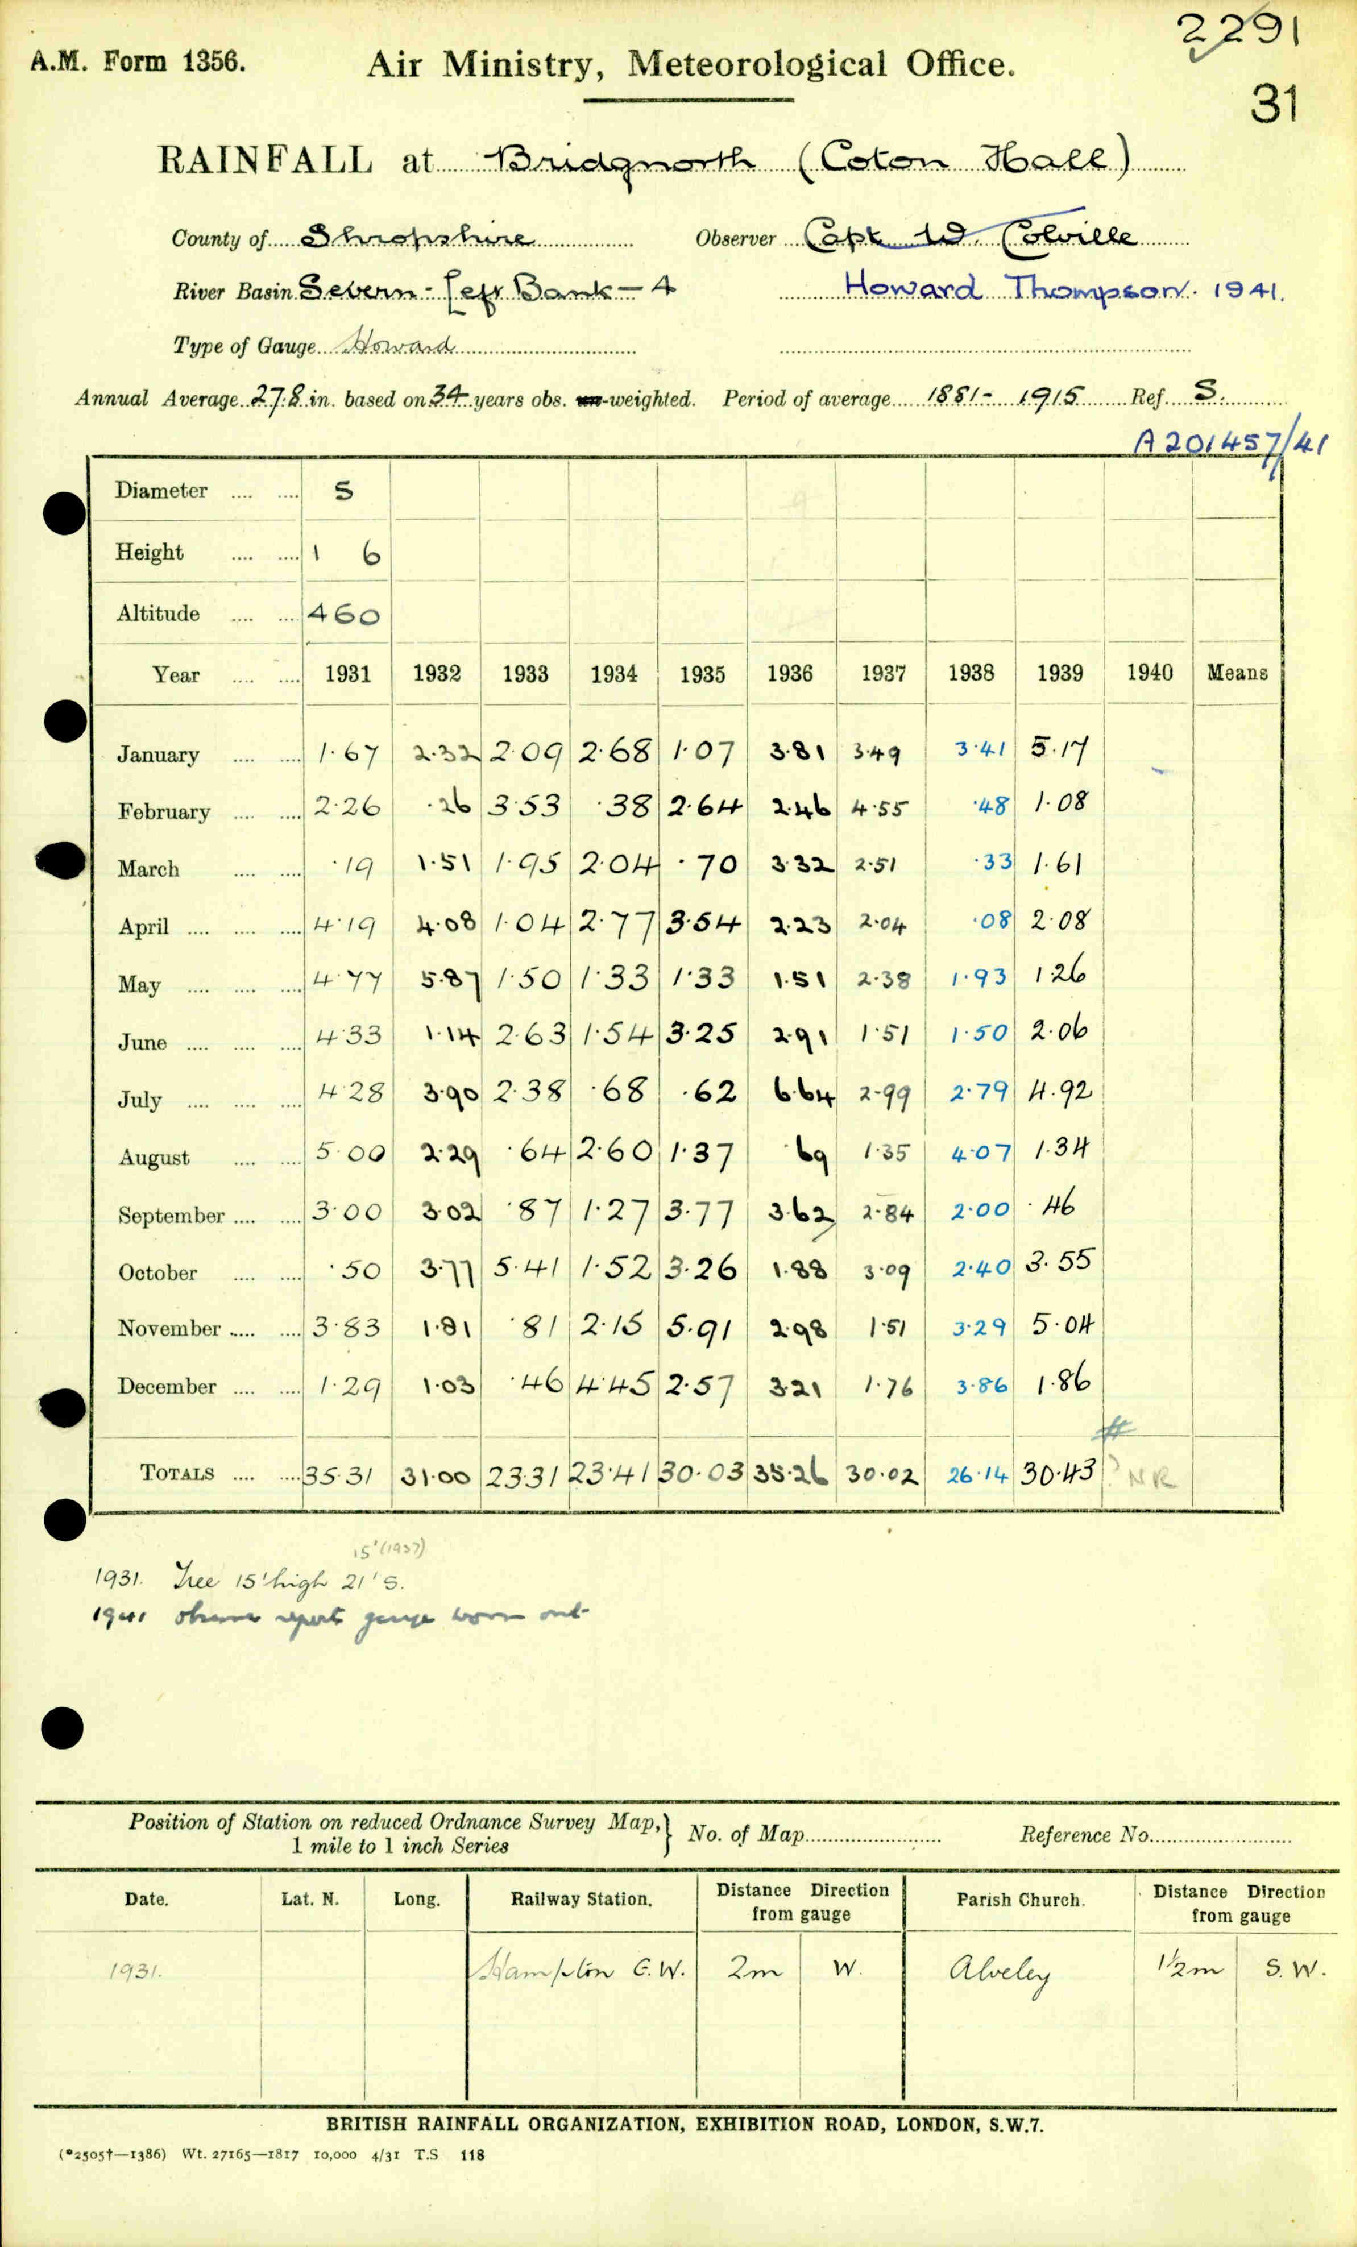 2291
A.M. Form 1356. Air Ministry, Meteorological Office.
31
RAINFALL at Bridgnorth (Coton Hall)
County of Shropshire Observer Capt W. Colville
River Basin Severn - Left Bank - 4 Howard Thompson. 1941.
Type of Gauge Howard
Annual Average 27.8 in. based on 34 years obs. un-weighted. Period of average 1881 - 1915 Ref. S.
A201457/41
Diameter .... .... 5
Height .... .... 1 6
Altitude .... .... 460
Year .... .... 1931 1932 1933 1934 1935 1936 1937 1938 1939 1940 Means
January .... .... 1.67 2.32 2.09 2.68 1.07 3.81 3.49 3.41 5.17
February .... .... 2.26 .26 3.53 .38 2.64 2.46 4.55 .48 1.08
March .... .... .19 1.51 1.95 2.04 .70 3.32 2.51 .33 1.61
April .... .... .... 4.19 4.08 1.04 2.77 3.54 2.23 2.04 .08 2.08
May .... .... .... 4.77 5.87 1.50 1.33 1.33 1.51 2.38 1.93 1.26
June .... .... .... 4.33 1.14 2.63 1.54 3.25 2.91 1.51 1.50 2.06
July .... .... .... 4.28 3.90 2.38 .68 .62 6.64 2.99 2.79 4.92
August .... .... 5.00 2.29 .64 2.60 1.37 .69 1.35 4.07 1.34
September .... .... 3.00 3.02 .87 1.27 3.77 3.62 2.84 2.00 .46
October .... .... .50 3.77 5.41 1.52 3.26 1.88 3.09 2.40 3.55
November .... .... 3.83 1.81 .81 2.15 5.91 2.98 1.51 3.29 5.04
December .... .... 1.29 1.03 .46 4.45 2.57 3.21 1.76 3.86 1.86
#
TOTALS .... .... 35.31 31.00 23.31 23.41 30.03 35.26 30.02 26.14 30.43 ? NR
15' (1937)
1931. Tree 15' high 21' S.
1941 observer reports gauge worn out
Position of Station on reduced Ordnance Survey Map,} No. of Map Reference No.
1 mile to 1 inch Series
Date. Lat. N. Long. Railway Station. Distance Direction from gauge Parish Church. Distance Direction from gauge
1931. Hampton G.W. 2m W. Alveley 1½m S.W.
BRITISH RAINFALL ORGANIZATION, EXHIBITION ROAD, LONDON, S.W.7.
(*2505†—1386) Wt. 27165—1817 10,000 4/31 T.S 118